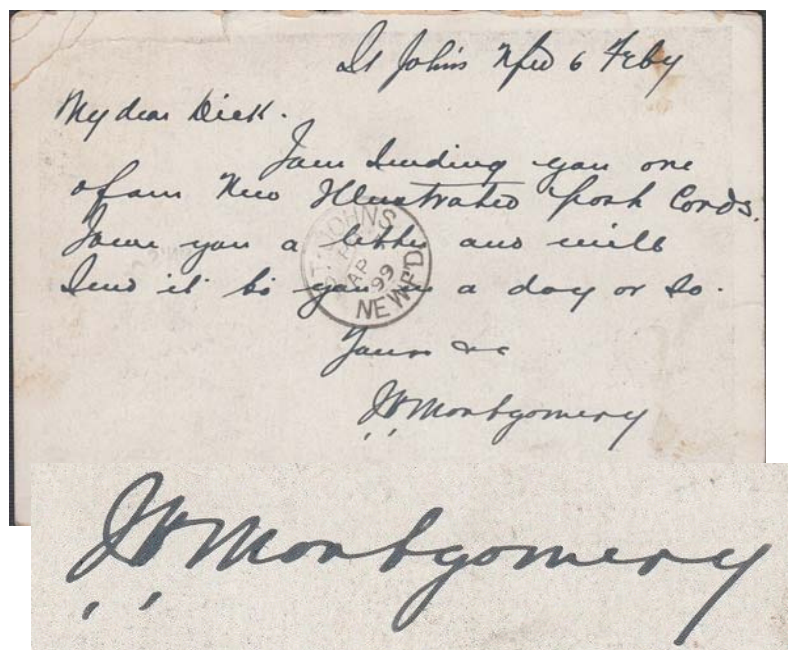 St John's Nfld 6 Feby
My dear Dick.
I am sending you one
of our New Illustrated Post Cards.
I owe you a letter and will
send it to you in a day or so.
Yours &c
JW Montgomery
ST. JOHNS
AP
99
NEWF'D.
JW Montgomery